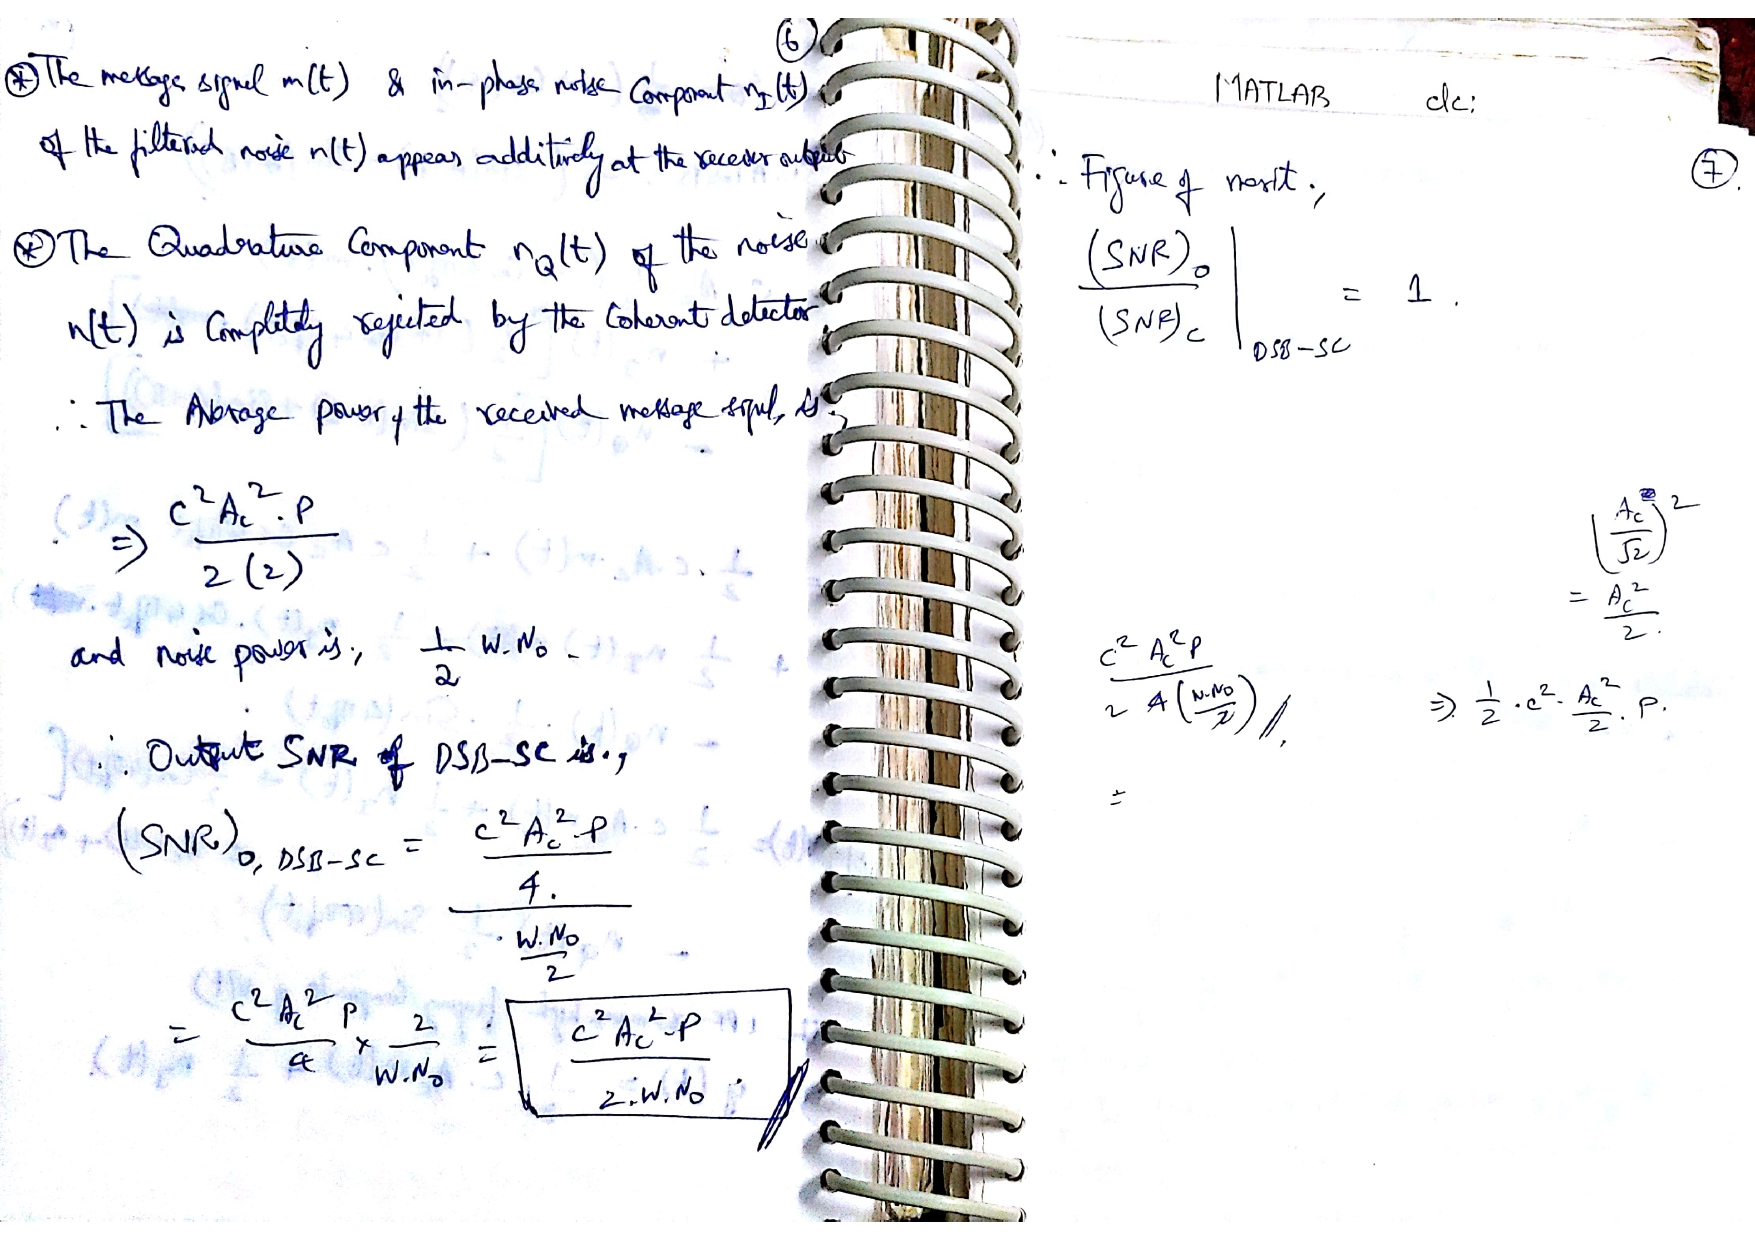 6
⊛ The message signal m(t) & in-phase noise Component n_I(t)
of the filtered noise n(t) appear additively at the receiver output
⊛ The Quadrature Component n_Q(t) of the noise
n(t) is Completely rejected by the Coherent detector
∴ The Average power of the received message signal, is,
⇒ C²A_c².P / 2(2)
and noise power is, 1/2 W.N₀.
∴ Output SNR of DSB-SC is.,
(SNR)_{O, DSB-SC} = (C²A_c².P / 4.) / (W.N₀ / 2)
= C²A_c²P / 4 × 2 / W.N₀ = C²A_c².P / 2.W.N₀
MATLAB clc;
7.
∴ Figure of merit.,
(SNR)_O / (SNR)_C |_{DSB-SC} = 1.
(A_c / √2)²
= A_c² / 2.
C²A_c²P / 2 4(W.N₀ / 2) //.
⇒ 1/2 . C² . A_c² / 2 . P.
=